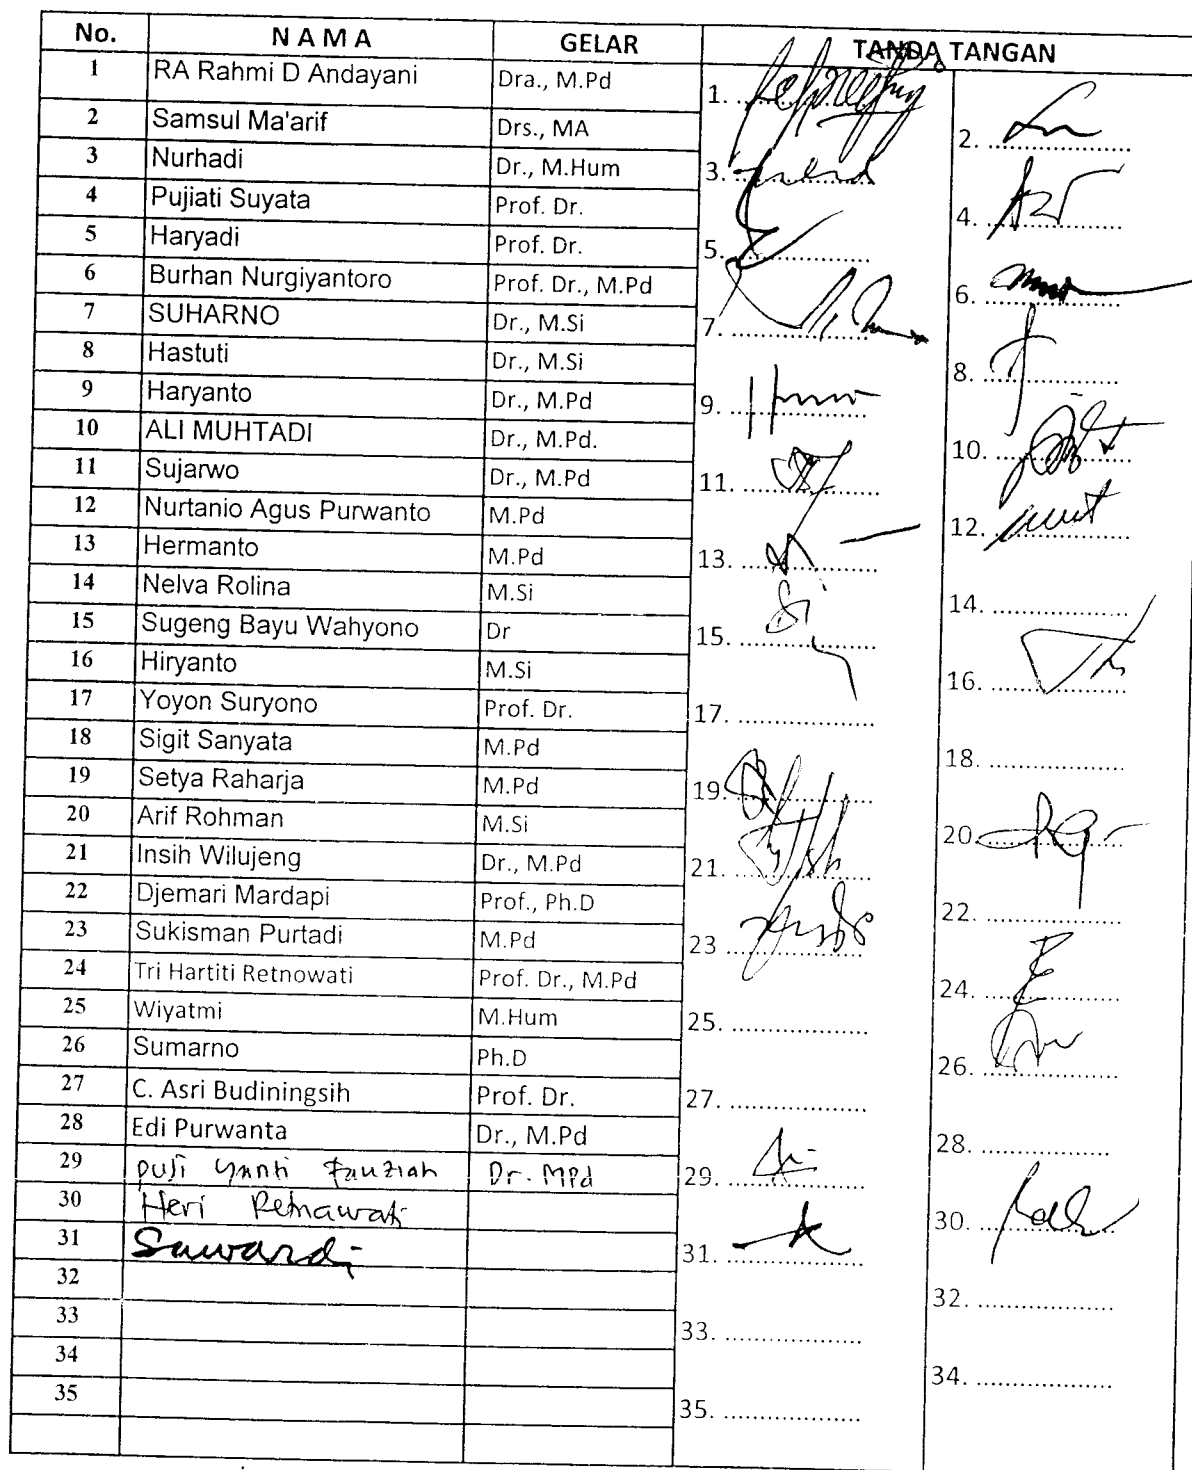 No. N A M A GELAR TANDA TANGAN
1 RA Rahmi D Andayani Dra., M.Pd 1. ..............
2 Samsul Ma'arif Drs., MA 2. ..............
3 Nurhadi Dr., M.Hum 3. ..............
4 Pujiati Suyata Prof. Dr. 4. ..............
5 Haryadi Prof. Dr. 5. ..............
6 Burhan Nurgiyantoro Prof. Dr., M.Pd 6. ..............
7 SUHARNO Dr., M.Si 7. ..............
8 Hastuti Dr., M.Si 8. ..............
9 Haryanto Dr., M.Pd 9. ..............
10 ALI MUHTADI Dr., M.Pd. 10. ..............
11 Sujarwo Dr., M.Pd 11. ..............
12 Nurtanio Agus Purwanto M.Pd 12. ..............
13 Hermanto M.Pd 13. ..............
14 Nelva Rolina M.Si 14. ..............
15 Sugeng Bayu Wahyono Dr 15. ..............
16 Hiryanto M.Si 16. ..............
17 Yoyon Suryono Prof. Dr. 17. ..............
18 Sigit Sanyata M.Pd 18. ..............
19 Setya Raharja M.Pd 19. ..............
20 Arif Rohman M.Si 20. ..............
21 Insih Wilujeng Dr., M.Pd 21. ..............
22 Djemari Mardapi Prof., Ph.D 22. ..............
23 Sukisman Purtadi M.Pd 23 ..............
24 Tri Hartiti Retnowati Prof. Dr., M.Pd 24. ..............
25 Wiyatmi M.Hum 25. ..............
26 Sumarno Ph.D 26. ..............
27 C. Asri Budiningsih Prof. Dr. 27. ..............
28 Edi Purwanta Dr., M.Pd 28. ..............
29 Puji Yanti Fauziah Dr. MPd 29. ..............
30 Heri Retnawati 30. ..............
31 Suwardi 31. ..............
32 32. ..............
33 33. ..............
34 34. ..............
35 35. ..............